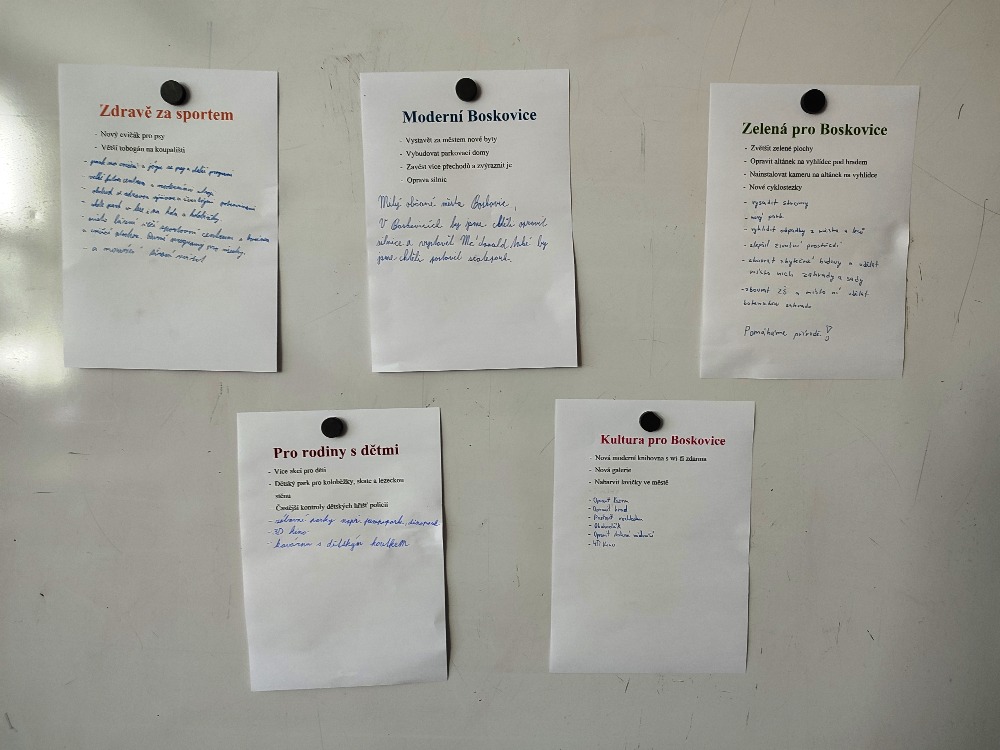 Zdravě za sportem
- Nový cvičák pro psy
- Větší tobogán na koupališti
- park na cvičení a jóga se psy a dětmi program
- velké fitness centrum s moderním
- obchod s zdravou výživou a čerstvými potravinami
- skate park v lese, na kola a koloběžky
- místo lázní větší sportovní centrum s bazénem
a umělá plocha. Ranní programy pro všechny.
Moderní Boskovice
- Vystavět za městem nové byty
- Vybudovat parkovací domy
- Zavést více přechodů a zvýraznit je
- Oprava silnic
Milý občané města Boskovic,
V Boskovicích by jsme chtěli opravit
silnice a rozstavil Mc'donald také by
jsme chtěli postavit scatepark.
Zelená pro Boskovice
- Zvětšit zelené plochy
- Opravit altánek na vyhlídce pod hradem
- Nainstalovat kameru na altánek na vyhlídce
- Nové cyklostezky
- vysadit stromy
- nový park
- vyklidit odpadky z města a lesů
- zlepšit životní prostředí
- zbourat zbytečné budovy a udělat
místo nich zahrady a sady
- zbourat ZŠ a místo ní udělat
botanickou zahradu
Pomáháme přírodě!
Pro rodiny s dětmi
- Více akcí pro děti
- Dětský park pro koloběžky, skate a lezeckou
stěnu
Častější kontroly dětských hřišť policií
- zábavné parky např. jumppark, dinopark
- 3D kino
- kavárna s dětským koutkem
Kultura pro Boskovice
- Nová moderní knihovna s wi fi zdarma
- Nová galerie
- Nabarvit lavičky ve městě
- Opravit
- Opravit hrad
- Postavit rozhlednu
- Opravit
- Kino